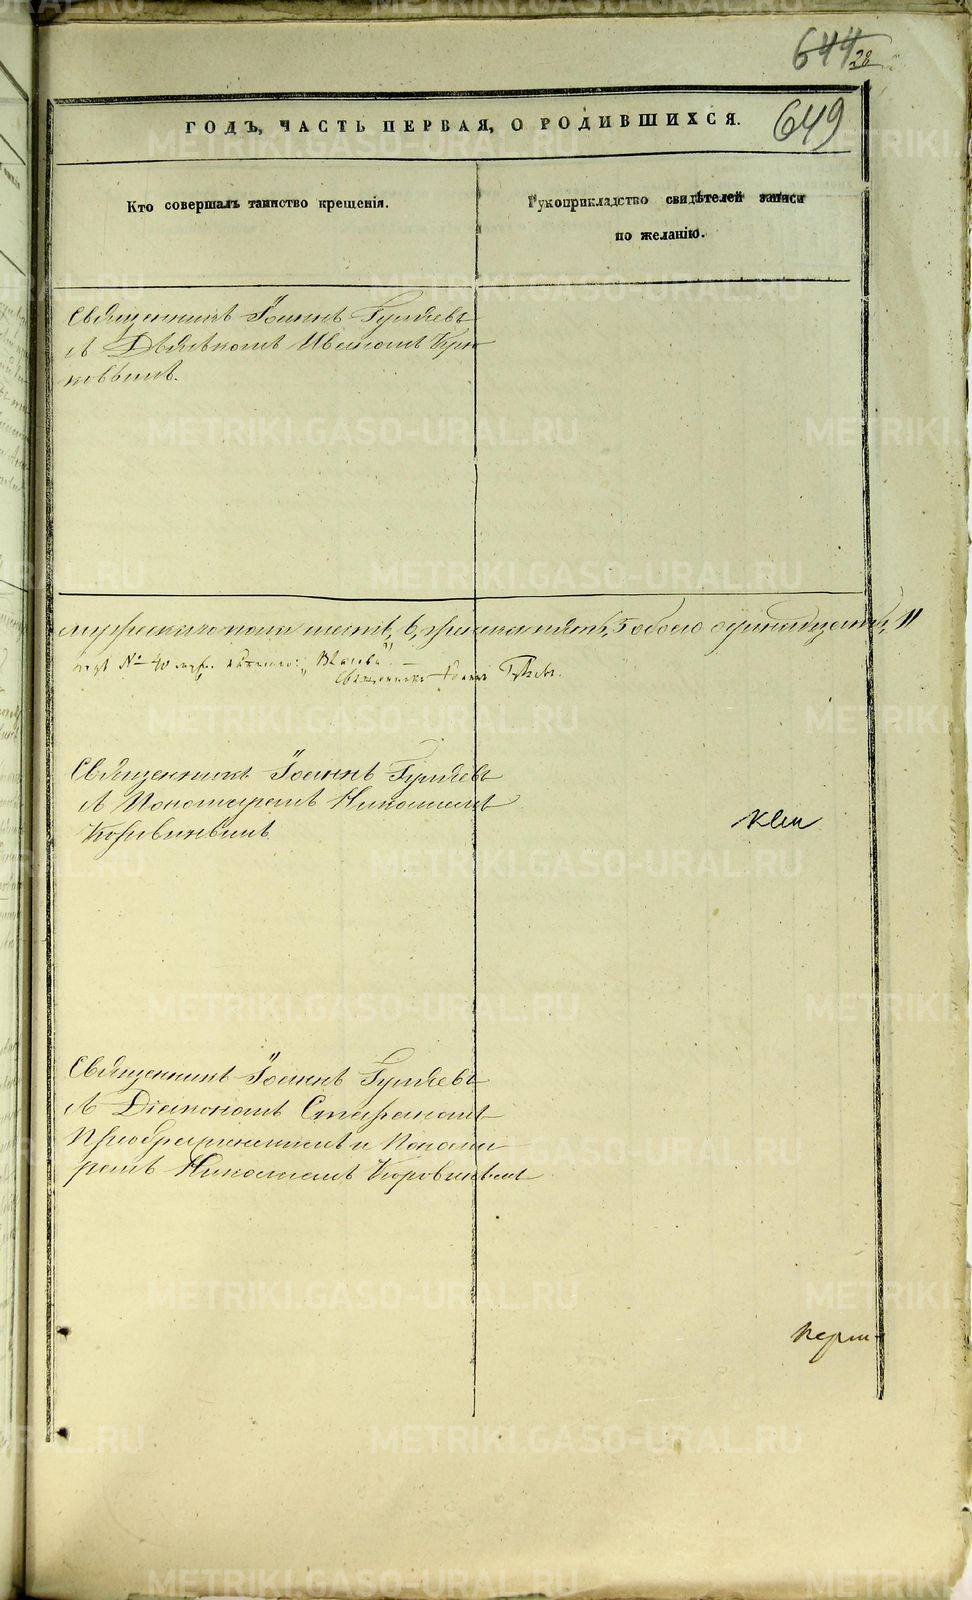 644
28
649
ГОДЪ, ЧАСТЬ ПЕРВАЯ, О РОДИВШИХСЯ.
Кто совершалъ таинство крещенія.
Рукоприкладство свидѣтелей записи
по желанію.
Священникъ Іоаннъ Гуляевъ
съ Дьячкомъ Иваномъ Крю
ковымъ.
мужескаго пола шесть, 6, женска пять, 5 обоего одинадцать, 11
№ 40
Священникъ Іоаннъ
Священникъ Іоаннъ Гуляевъ
съ Пономаремъ Николаемъ
Коровинымъ
Священникъ Іоаннъ Гуляевъ
съ Діакономъ Стефаномъ
Преображенскимъ и Понома
ремъ Николаемъ Коровинымъ
METRIKI.GASO-URAL.RU